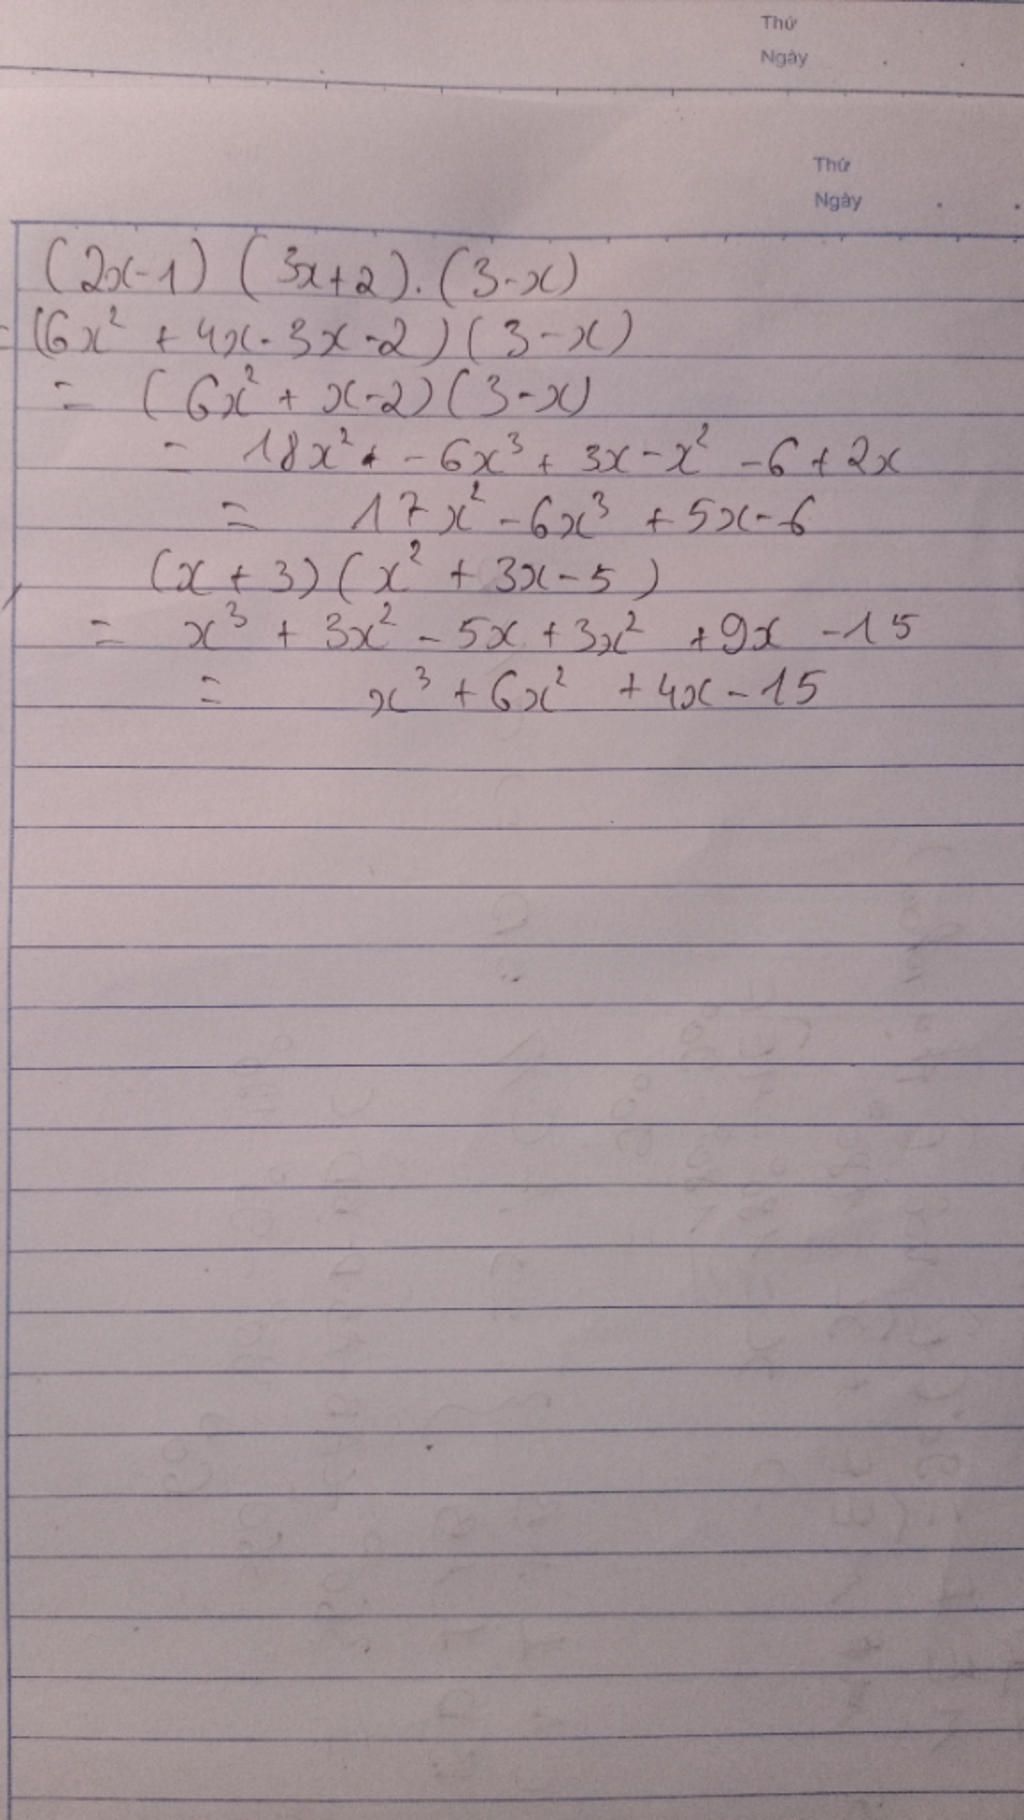 Thứ
Ngày
Thứ
Ngày
(2x-1) (3x+2).(3-x)
= (6x² + 4x-3x-2)(3-x)
= (6x² + x-2)(3-x)
= 18x² - 6x³ + 3x - x² - 6 + 2x
= 17x² - 6x³ + 5x - 6
(x + 3)(x² + 3x - 5)
= x³ + 3x² - 5x + 3x² + 9x - 15
= x³ + 6x² + 4x - 15